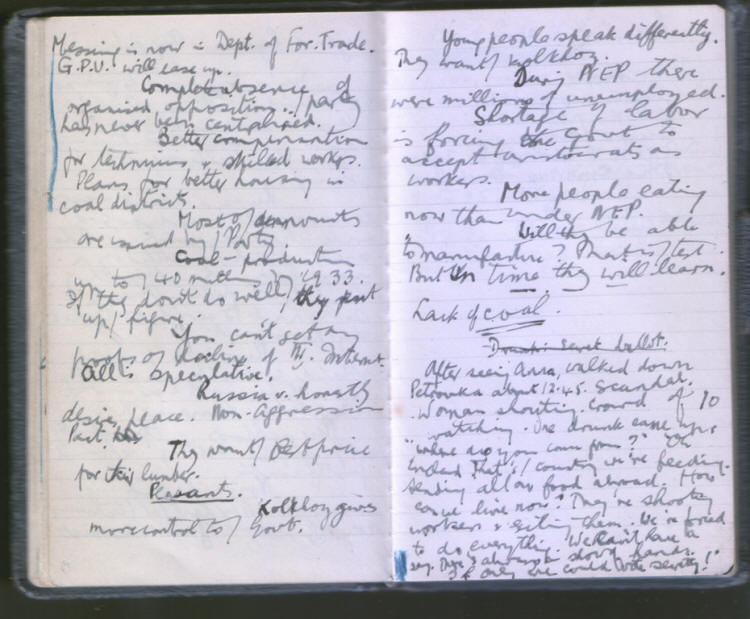 Messing is now in Dept. of For. Trade.
G.P.U. will ease up.
Complete absence of
organised opposition. / party
has never been centralised.
Better compensation
for technicians & skilled workers.
Plans for better housing in
coal districts.
Most of / 
are issued by / Party
Coal-production
up to / 40 million by 1933.
If they don't do well, they just
up / figure.
You can't get any
proofs of decline of
All is speculative.
Russia v. honestly
desires peace. Non-Aggression
Pact.
They want / best price
for their lumber.
Peasants.
Kolkhoz gives
more control to / Govt.
Young people speak differently.
They want / kolkhoz.
During NEP there
were millions of unemployed.
Shortage of labor
is forcing the Govt to
accept aristocrats as
workers.
More people eating
now than under NEP.
Will they be able
to manufacture? That is / test.
But in time they will learn.
Lack of coal.
Drunk: secret ballot.
After seeing Anna, walked down
Petrovka about 12.45. Scandal.
Woman shouting. Crowd of 10
watching. One drunk came up:
"Where do you come from?" "Oh
England. That's / country we're feeding.
Sending all our food abroad. How
can we live now? They're shooting
workers & exiling them. We're forced
to do everything. We can't have a
say. There's always a show of hands.
If only we could vote secretly!"